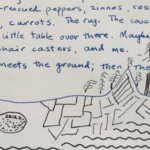 -rescued peppers, zinnas, cos
, carrots. The rug. The couc
little table over there. Maybe
hair casters, and me.
meets the ground; then, the